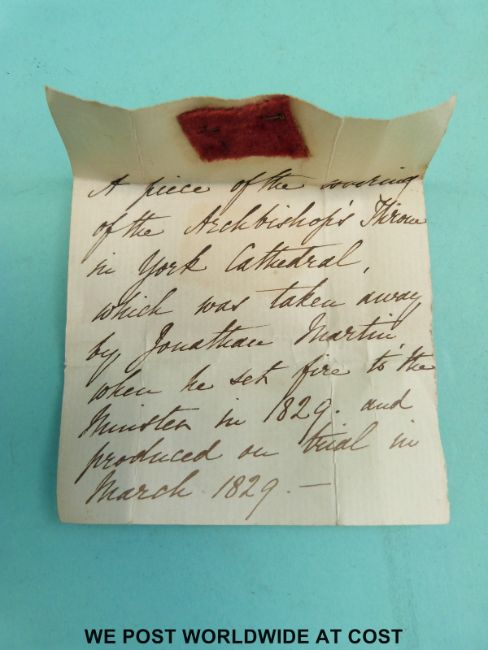 A piece of the covering
of the Archbishop's Throne
in York Cathedral,
which was taken away
by Jonathan Martin,
when he set fire to the
Minster in 1829. and
produced on trial in
March 1829. —
WE POST WORLDWIDE AT COST